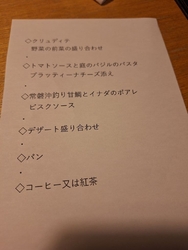 ◇クリュディテ
野菜の前菜の盛り合わせ
・
◇トマトソースと茄のバジルのパスタ
ブラッティーナチーズ添え
・
◇常磐沖釣り甘鯛とイナダのポアレ
ビスクソース
・
◇デザート盛り合わせ
・
◇パン
・
◇コーヒー又は紅茶